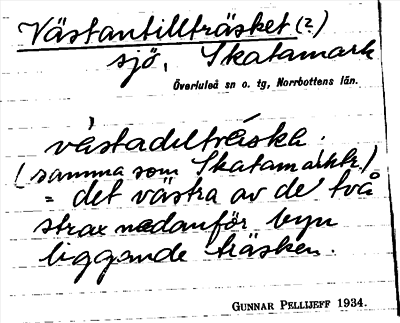 Västantillträsket (2)
sjö, Skatamark
Överluleå sn o. tg, Norrbottens län.
västadeltráskh.
(samma som Skatamarkh.)
= det västra av de två
strax nedanför byn
liggande träsken.
GUNNAR PELLIJEFF 1934.